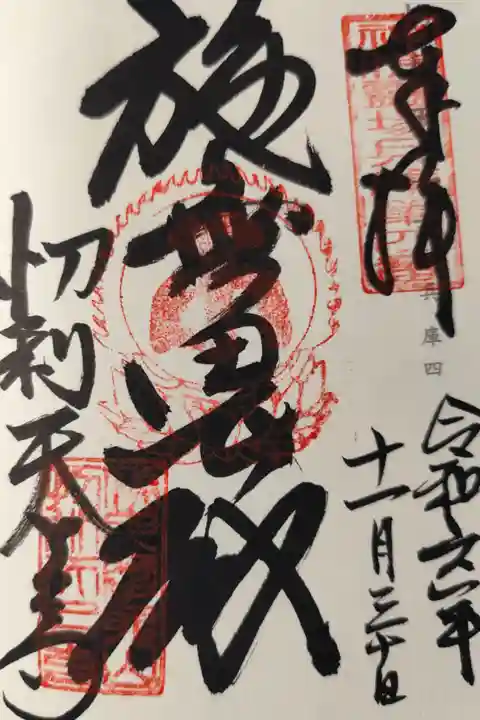 奉拝
兵庫四
令和六年
十一月三十日
施無畏殿
忉利天上寺